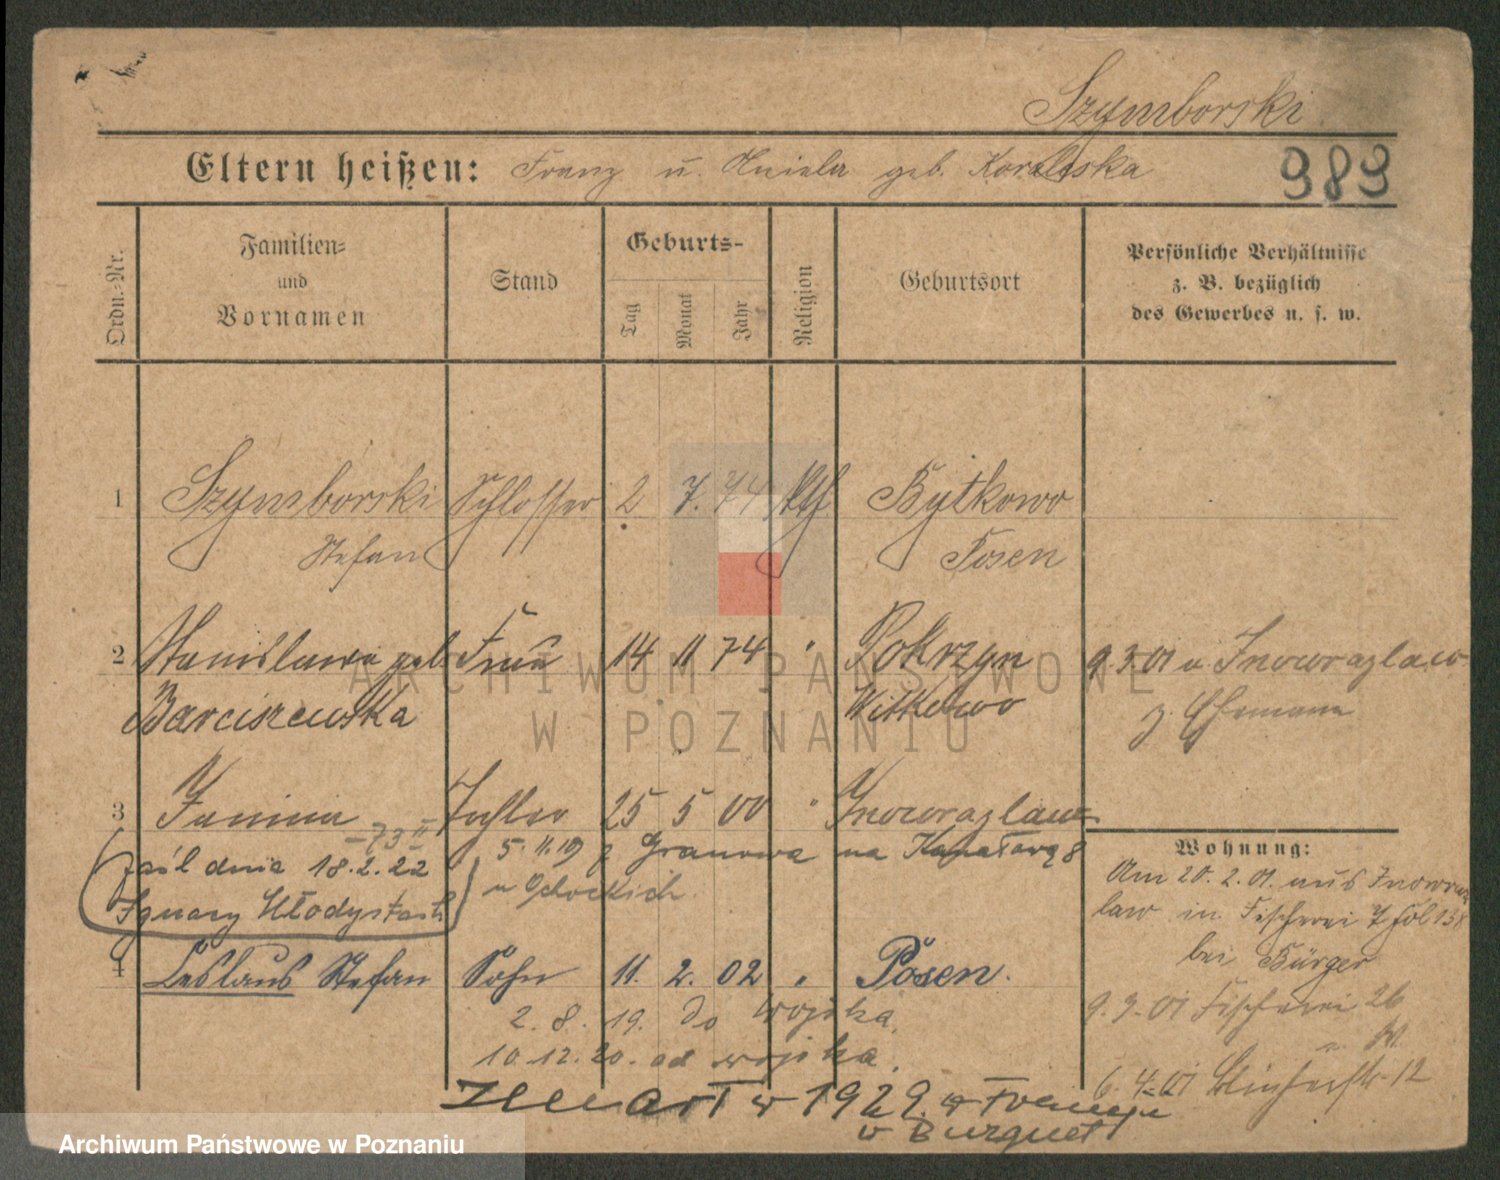 Szymborski
Eltern heißen: Franz u. Aniela geb. Koraleska
983
Ordn.-Nr.
Familien-
und
Vornamen
Stand
Geburts-
Tag
Monat
Jahr
Religion
Geburtsort
Persönliche Verhältnisse
z. B. bezüglich
des Gewerbes u. s. w.
1 Szymborski Schlosser 2 7. 74 kth Bytkowo
Stefan Posen
2 Stanislawa geb Frau 14 11 74 " Pokrzyn 9.3.01 v. Inowrazlaw
Barciszewska Witkowo z. Ehemann
3 Janina Tochter 25 5 00 " Inowrazlaw
5.11.19 z Granowa na Kanałową 8
zaśl dnia 18.2.22
Ignacy
4 Leslaus Stefan Sohn 11. 2. 02 " Posen.
2.8.19. do wojska.
10.12.20. od wojska.
Zmarł w 1929. w Francyi
w Burguet
Wohnung:
Am 20.2.01. aus Inowraz
law in Fischerei 7 bei Bürger
9.3.01 Fischerei 26
6.4.01 12
ARCHIWUM PAŃSTWOWE
W POZNANIU
Archiwum Państwowe w Poznaniu